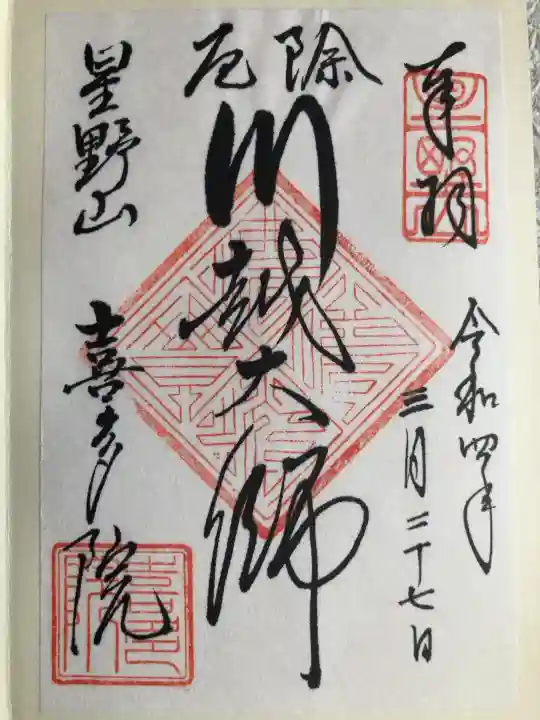 奉拝
令和四年
三月二十七日
厄除
川越大師
星野山
喜多院